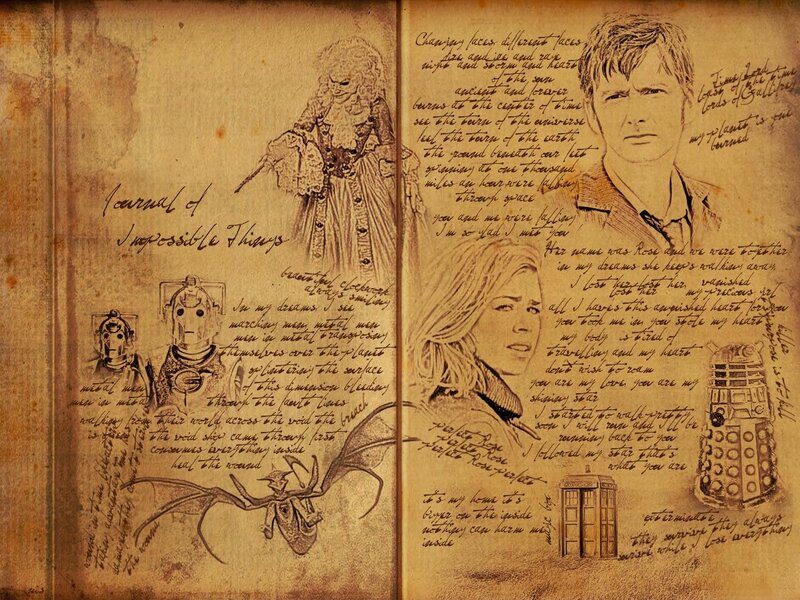 Journal of
Impossible Things
beautiful clockwork
always smiling
In my dreams I see
marching men metal men
men in metal transposing
themselves over the planet
splintering the surface
of this dimension bleeding
through the fault lines
metal men
men in metal
walking from their world across the void the breach
the void ship came through first
consumes everything inside
heal the wound
the wound
Changing faces different faces
fire and ice and rage
night and storm and heart
of the sun
ancient and forever
burns at the center of time
see the turn of the universe
feel the turn of the earth
the ground beneath our feet
spinning at one thousand
miles an hour were falling
through space
you and me were falling
I'm so glad I met you
Time Lord
last of the time
lords of Gallifrey
my planet is gone
burned
Her name was Rose and we were together
in my dreams she keeps walking away
I lost her lost her vanished
lost her my precious girl
all I have this anguished heart for you
you took me in you stole my heart
my body is tired of
travelling and my heart
dont wish to roam
you are my love you are my
shining star
I started to walk pretty
soon I will run and I'll be
running back to you
I followed my star that's
what you are
perfect Rose
perfect Rose
perfect Rose perfect
it's my home it's
biger on the inside
nothing can harm me
inside
magic box
exterminate
they survive they always
survive while I lose everything